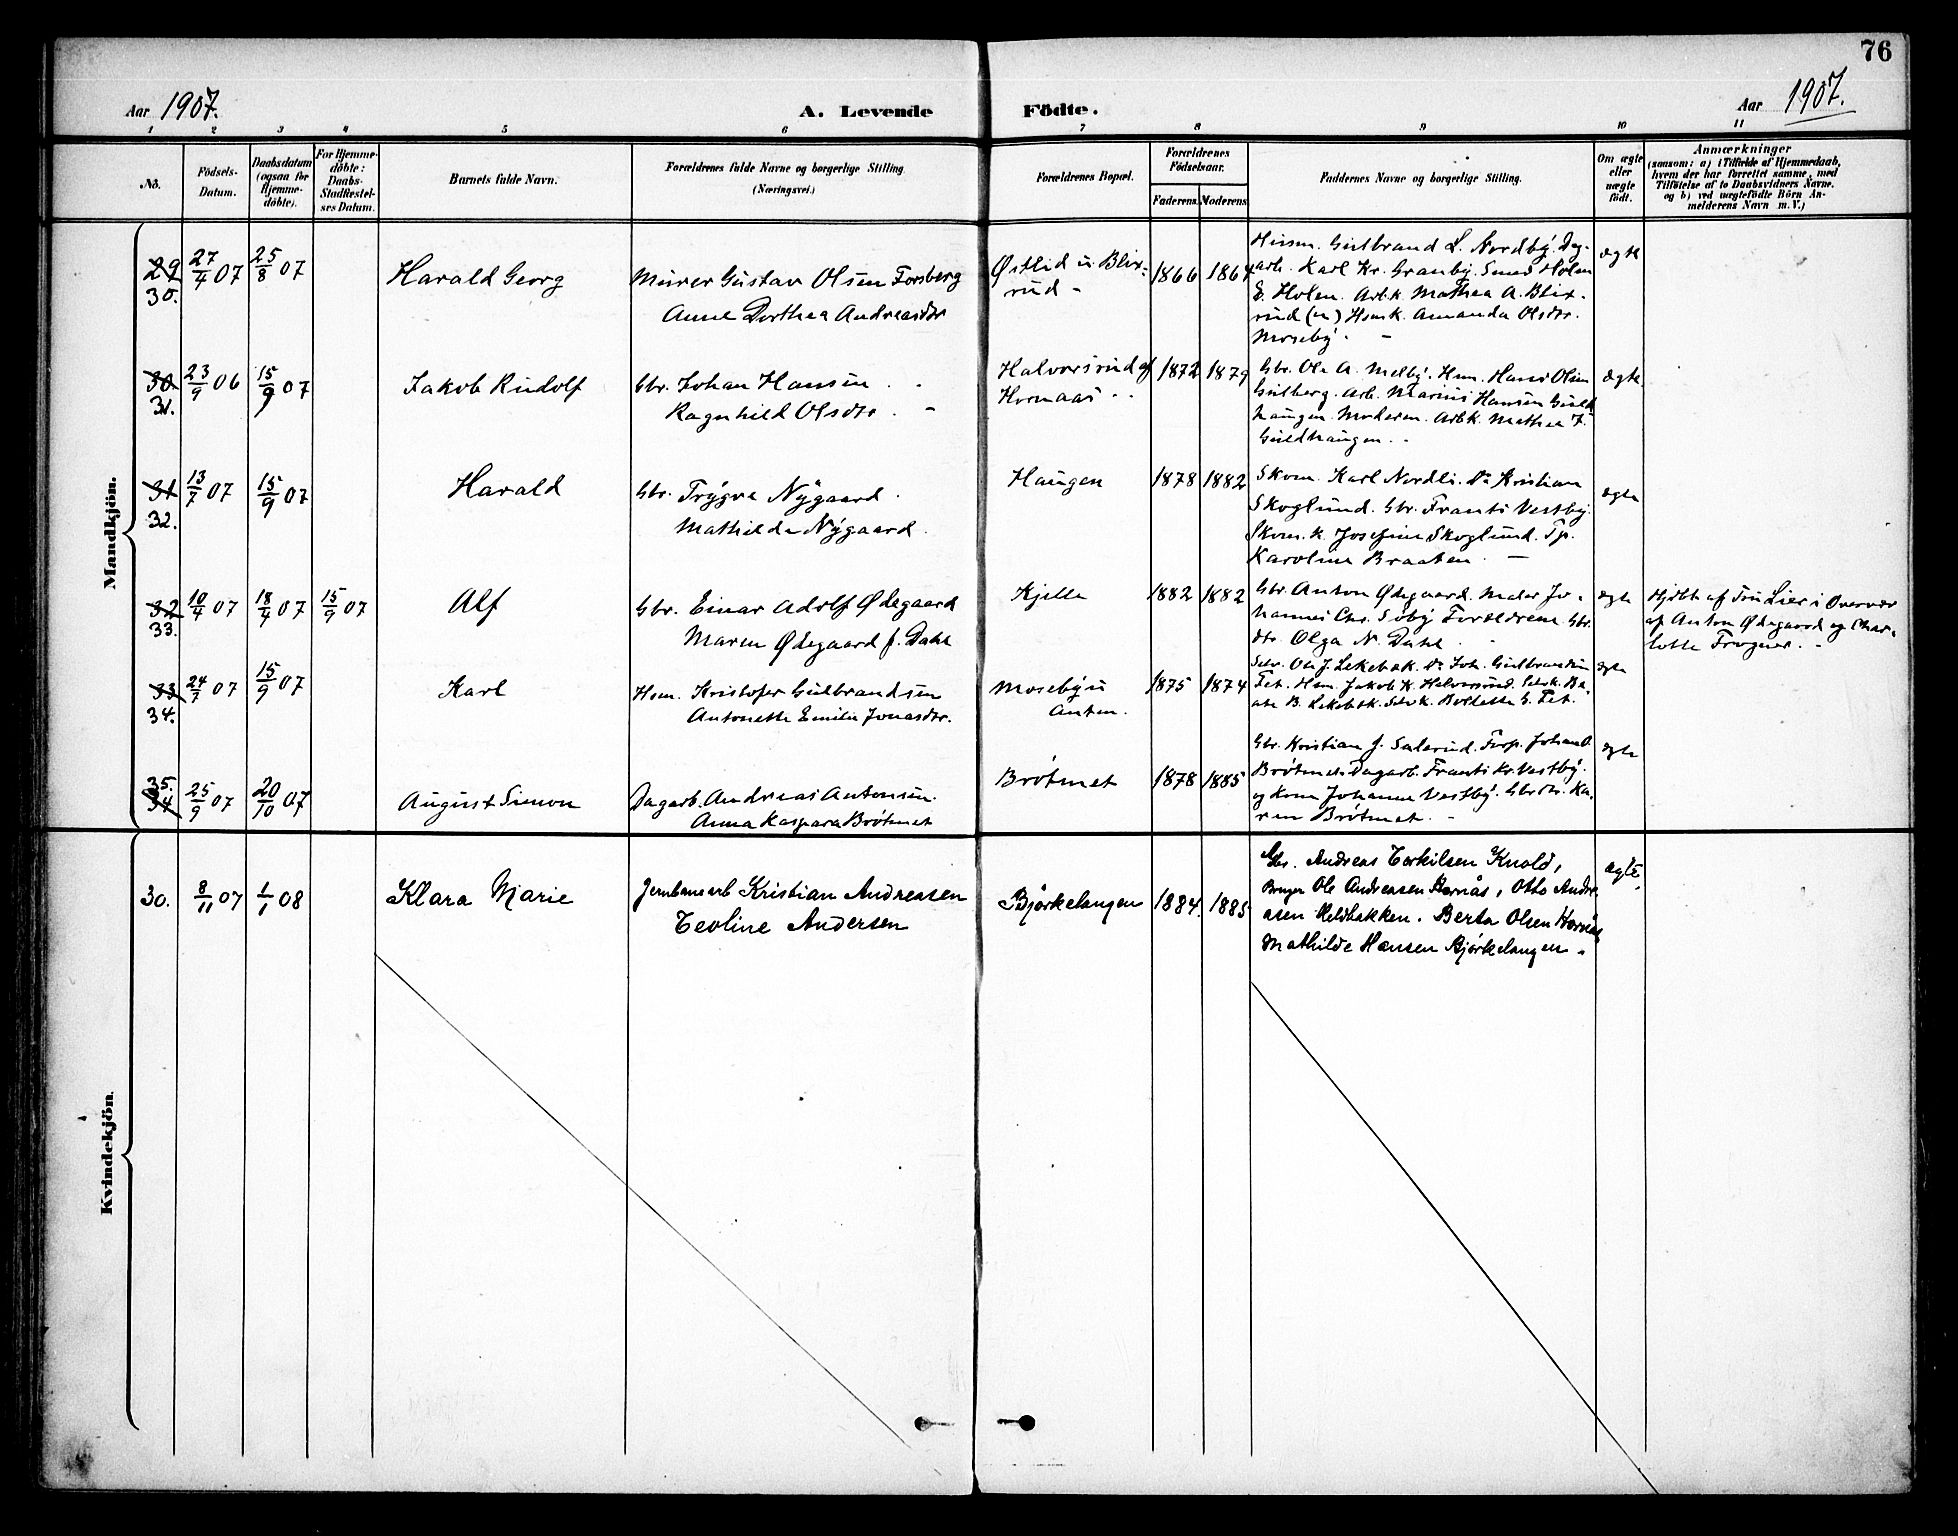 76
Aar 1907.
A. Levende Födte.
Aar 1907.
1 2 3 4 5 6 7 8 9 10 11
No.
Födsels-
Datum.
Daabsdatum
(ogsaa for
Hjemme-
döbte).
For Hjemme-
döbte:
Daabs-
Stadfæstel-
ses Datum.
Barnets fulde Navn.
Forældrenes fulde Navne og borgerlige Stilling
(Næringsvei.)
Forældrenes Bopæl.
Forældrenes
Födselsaar.
Faderens. Moderens.
Faddernes Navne og borgerlige Stilling.
Om ægte
eller
uægte
födt.
Anmærkninger
(saasom: a) i Tilfælde af Hjemmedaab,
hvem der har forrettet samme, med
Tilföielse af to Daabsvidners Navne,
og b) ved uægtefödte Börn An-
melderens Navn m. V.)
Mandkjön.
29
30.
27/4 07
25/8 07
Harald Georg
Murer Gustav Olsen Forsberg
Anne Dorthea Andreasdtr
Østlid u Blix-
rud -
1866 1864
Husm. Gulbrand L. Nordby. Dag-
arb. Karl Kr. Granby. Smed Holen
E. Holen. Arb.k. Mathea A. Blix-
rud (m) Hsmk. Amanda Olsdtr.
Moseby. -
ægte
30
31.
23/9 06
15/9 07
Jakob Rudolf
Gbr. Johan Hansen
Ragnhild Olsdtr. -
Halvorsrud af
Hornaas
1872 1879
Gbr. Ole A. Melby. Hsm. Hans Olsen
Gulberg. Arb. Marius Hansen Guld-
haugen. Moderen. Arbk. Mathea J.
Guldhaugen.
ægte
31
32.
13/7 07
15/9 07
Harald
Gbr. Trygve Nygaard.
Mathilde Nygaard.
Haugen
1878 1882
Skom. Karl Nordli. Do Kristian
Skoglund. Gbr. Frants Vestby.
Skom. k. Josefine Skoglund. Tp.
Karoline Braaten. -
ægte
32
33.
10/4 07
18/4 07
15/9 07
Alf
Gbr. Einar Adolf Ødegaard
Maren Ødegaard f. Dahl
Kjelle
1882 1882
Gbr. Anton Ødegaard. Maler Jo-
hannes Chr. Søby Forældrene Gbr.
dtr. Olga N. Dahl.
ægte
Hjdbt. af Fru Lier i Overvær
af Anton Ødegaard og Char-
lotte Frogner. -
33
34.
24/7 07
15/9 07
Karl
Hsm. Kristofer Gulbrandsen
Antonette Emilie Jonasdtr.
Moseby u
Anten.
1875 1874
Selv. Ole J. Lekebæk. Do Joh. Gulbrandsen
Tet. Hsm. Jakob K. Halvorsrud. Selvk. Be-
ate B. Lekebæk. Selvk. Bolette G. Tet.
ægte
35.
34
25/9 07
20/10 07
August Simon
Dagarb. Andreas Antonsen.
Anna Kaspara Brøtmet
Brøtmet
1878 1885
Gbr. Kristian J. Johan
Brøtmet. Dagarb. Frants Kr. Vestby.
og Kone Johanne Vestby. Gbrdtr. Ka-
ren Brøtmet. -
ægte
Kvindekjön.
30.
8/11 07
1/1 08
Klara Marie
Jernbanearb Kristian Andreasen
Teoline Andersen
Bjørkelangen
1884. 1885
Gbr. Andreas Terkilsen Knold,
Bruger Ole Andreasen Hornås, Otto Andre-
asen Heldbakken. Berta Olsen Hornås
Mathilde Hansen Bjørkelangen.
ægte.